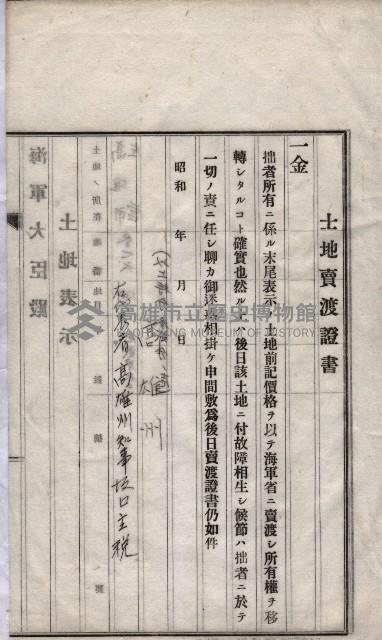 土地賣渡證書
一金
拙者所有ニ係ル末尾表示ノ土地前記價格ヲ以テ海軍省ニ賣渡シ所有權ヲ移
轉シタルコト確實也然ル上ハ後日該土地ニ付故障相生シ候節ハ拙者ニ於テ
一切ノ責ニ任シ聊カ御迷惑相掛ケ申間敷爲後日賣渡證書仍如件
昭和 年 月 日
高雄州知事坂口主税
土地ノ所在
土地表示
海軍大臣殿
高雄市立歷史博物館
KAOHSIUNG MUSEUM OF HISTORY